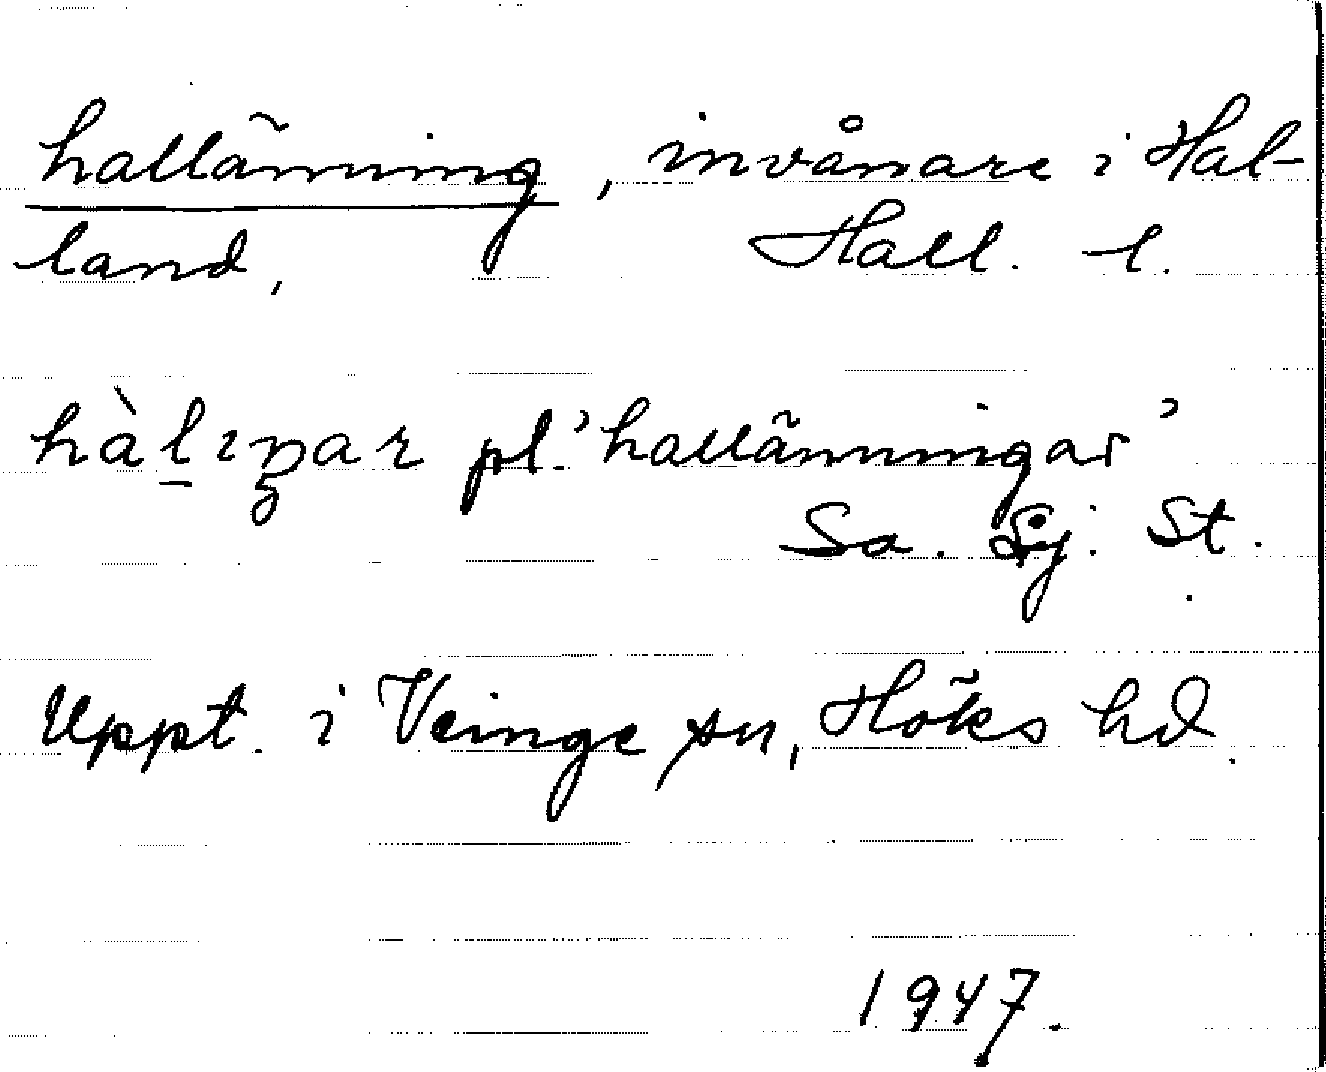 hallänning, invånare i Hal-
land, Hall. l.
hàl̲ıŋar pl. 'hallänningar'
Sa. Sj. St.
Uppt. i Veinge sn, Höks hd.
1947.